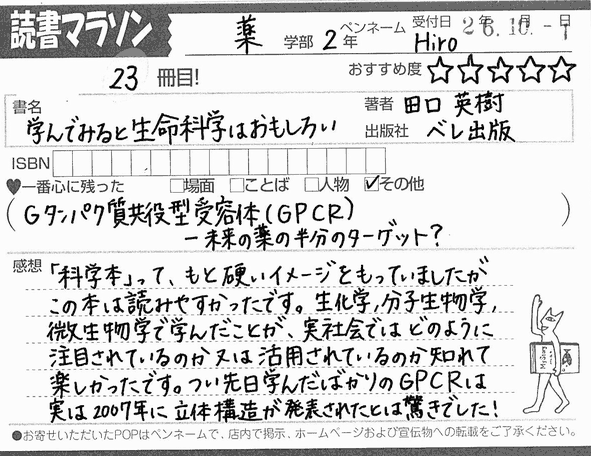 読書マラソン
薬 学部 2 年
ペンネーム Hiro
受付日 26.10.-1
23 冊目!
おすすめ度 ☆☆☆☆☆
書名 学んでみると生命科学はおもしろい
著者 田口 英樹
出版社 ベレ出版
ISBN
♥一番心に残った □場面 □ことば □人物 ☑その他
(Gタンパク質共役型受容体(GPCR)
ー未来の薬の半分のターゲット? )
感想
「科学本」って、もと硬いイメージをもっていましたが
この本は読みやすかったです。生化学,分子生物学,
微生物学で学んだことが、実社会ではどのように
注目されているのか又は活用されているのか知れて
楽しかったです。つい先日学んだばかりのGPCRは
実は2007年に立体構造が発表されたとは驚きでした!
●お寄せいただいたPOPはペンネームで、店内で掲示、ホームページおよび宣伝物への転載をご了承ください。